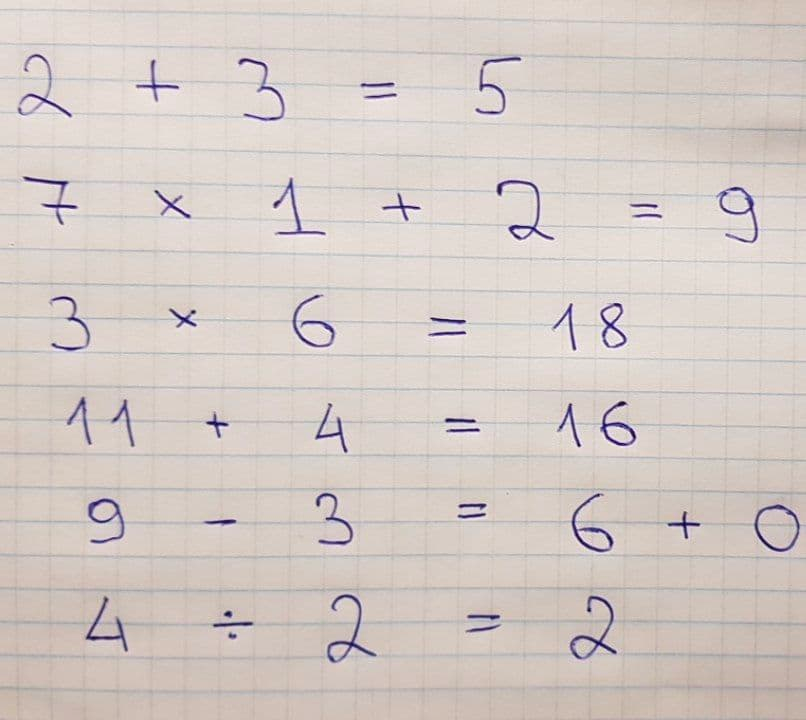 2 + 3 = 5
7 × 1 + 2 = 9
3 × 6 = 18
11 + 4 = 16
9 - 3 = 6 + 0
4 ÷ 2 = 2